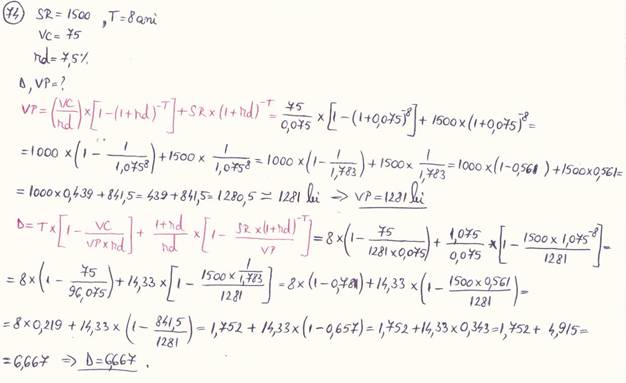 74) SR = 1500 , T = 8 ani
VC = 75
rd = 7,5%
D, VP = ?
VP = (VC/rd) × [1-(1+rd)^-T] + SR × (1+rd)^-T = 75/0,075 × [1-(1+0,075)^-8] + 1500 × (1+0,075)^-8 =
= 1000 × (1 - 1/1,075^8) + 1500 × 1/1,075^8 = 1000 × (1 - 1/1,783) + 1500 × 1/1,783 = 1000 × (1-0,561) + 1500 × 0,561 =
= 1000 × 0,439 + 841,5 = 439 + 841,5 = 1280,5 ≃ 1281 lei → VP = 1281 lei
D = T × [1 - VC/(VP × rd)] + (1+rd)/rd × [1 - SR × (1+rd)^-T/VP] = 8 × (1 - 75/(1281 × 0,075)) + 1,075/0,075 × [1 - 1500 × 1,075^-8/1281] =
= 8 × (1 - 75/96,075) + 14,33 × [1 - 1500 × 1/1,783/1281] = 8 × (1 - 0,781) + 14,33 × (1 - 1500 × 0,561/1281) =
= 8 × 0,219 + 14,33 × (1 - 841,5/1281) = 1,752 + 14,33 × (1 - 0,657) = 1,752 + 14,33 × 0,343 = 1,752 + 4,915 =
= 6,667 ⇒ D = 6,667 .